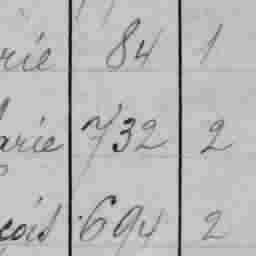 rie 84 1
arie 732 2
çois 694 2